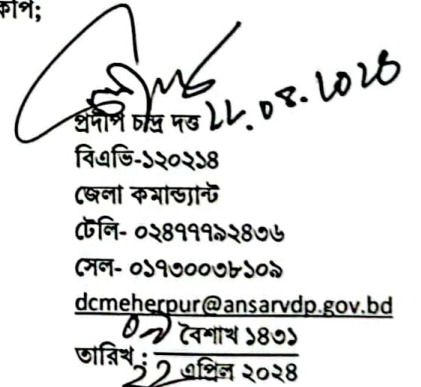 কপি;
প্রদীপ চন্দ্র দত্ত ২২.০৪.২০২৪
বিএভি-১২০২১৪
জেলা কমান্ড্যান্ট
টেলি- ০২৪৭৭৭৯২৪৩৬
সেল- ০১৭৩০০৩৮১০৯
dcmeherpur@ansarvdp.gov.bd
০৯ বৈশাখ ১৪৩১
তারিখ :
২২ এপ্রিল ২০২৪